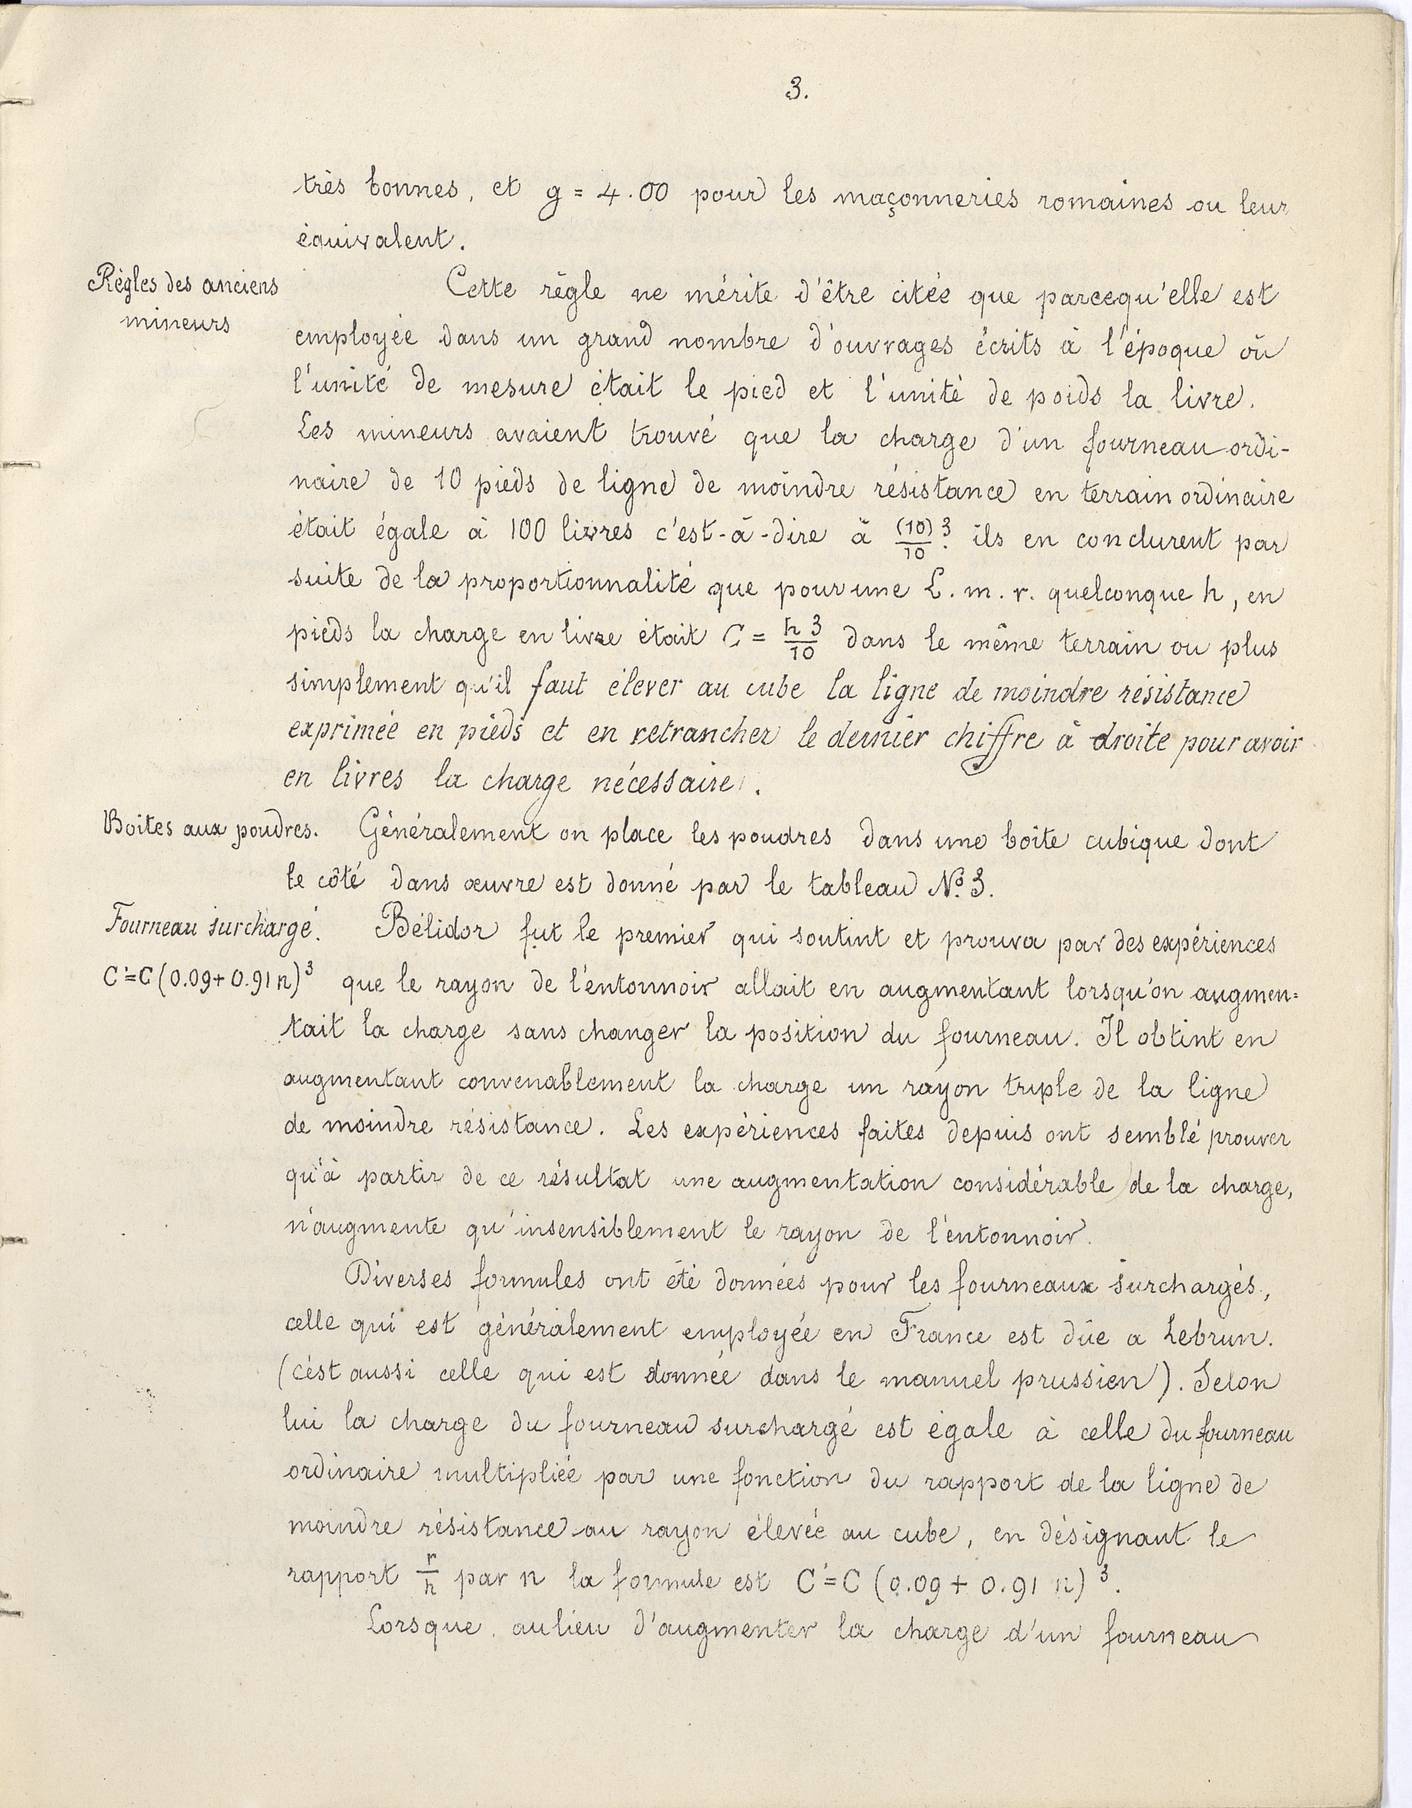 3.
très bonnes, et g = 4.00 pour les maçonneries romaines ou leur
équivalent.
Règles des anciens
mineurs
Cette règle ne mérite d'être citée que parcequ'elle est
employée dans un grand nombre d'ouvrages écrits à l'époque où
l'unité de mesure était le pied et l'unité de poids la livre.
Les mineurs avaient trouvé que la charge d'un fourneau ordi-
naire de 10 pieds de ligne de moindre résistance en terrain ordinaire
était égale à 100 livres c'est-à-dire à (10)³/10. ils en conclurent par
suite de la proportionnalité que pour une L. m. r. quelconque h, en
pieds la charge en livre était C = h³/10 dans le même terrain ou plus
simplement qu'il faut élever au cube la ligne de moindre résistance
exprimée en pieds et en retrancher le dernier chiffre à droite pour avoir
en livres la charge nécessaire.
Boites aux poudres. Généralement on place les poudres dans une boîte cubique dont
le côté dans œuvre est donné par le tableau Nº 3.
Fourneau surchargé. Bélidor fut le premier qui soutint et prouva par des expériences
C'=C(0.09+0.91n)³ que le rayon de l'entonnoir allait en augmentant lorsqu'on augmen=
tait la charge sans changer la position du fourneau. Il obtint en
augmentant convenablement la charge un rayon triple de la ligne
de moindre résistance. Les expériences faites depuis ont semblé prouver
qu'à partir de ce résultat une augmentation considérable de la charge,
n'augmente qu'insensiblement le rayon de l'entonnoir.
Diverses formules ont été données pour les fourneaux surchargés,
celle qui est généralement employée en France est dûe a Lebrun.
(c'est aussi celle qui est donnée dans le manuel prussien). Selon
lui la charge du fourneau surchargé est égale à celle du fourneau
ordinaire multipliée par une fonction du rapport de la ligne de
moindre résistance au rayon élevée au cube, en désignant le
rapport r/h par n la formule est C'=C (0.09 + 0.91 n)³.
Lorsque, aulieu d'augmenter la charge d'un fourneau